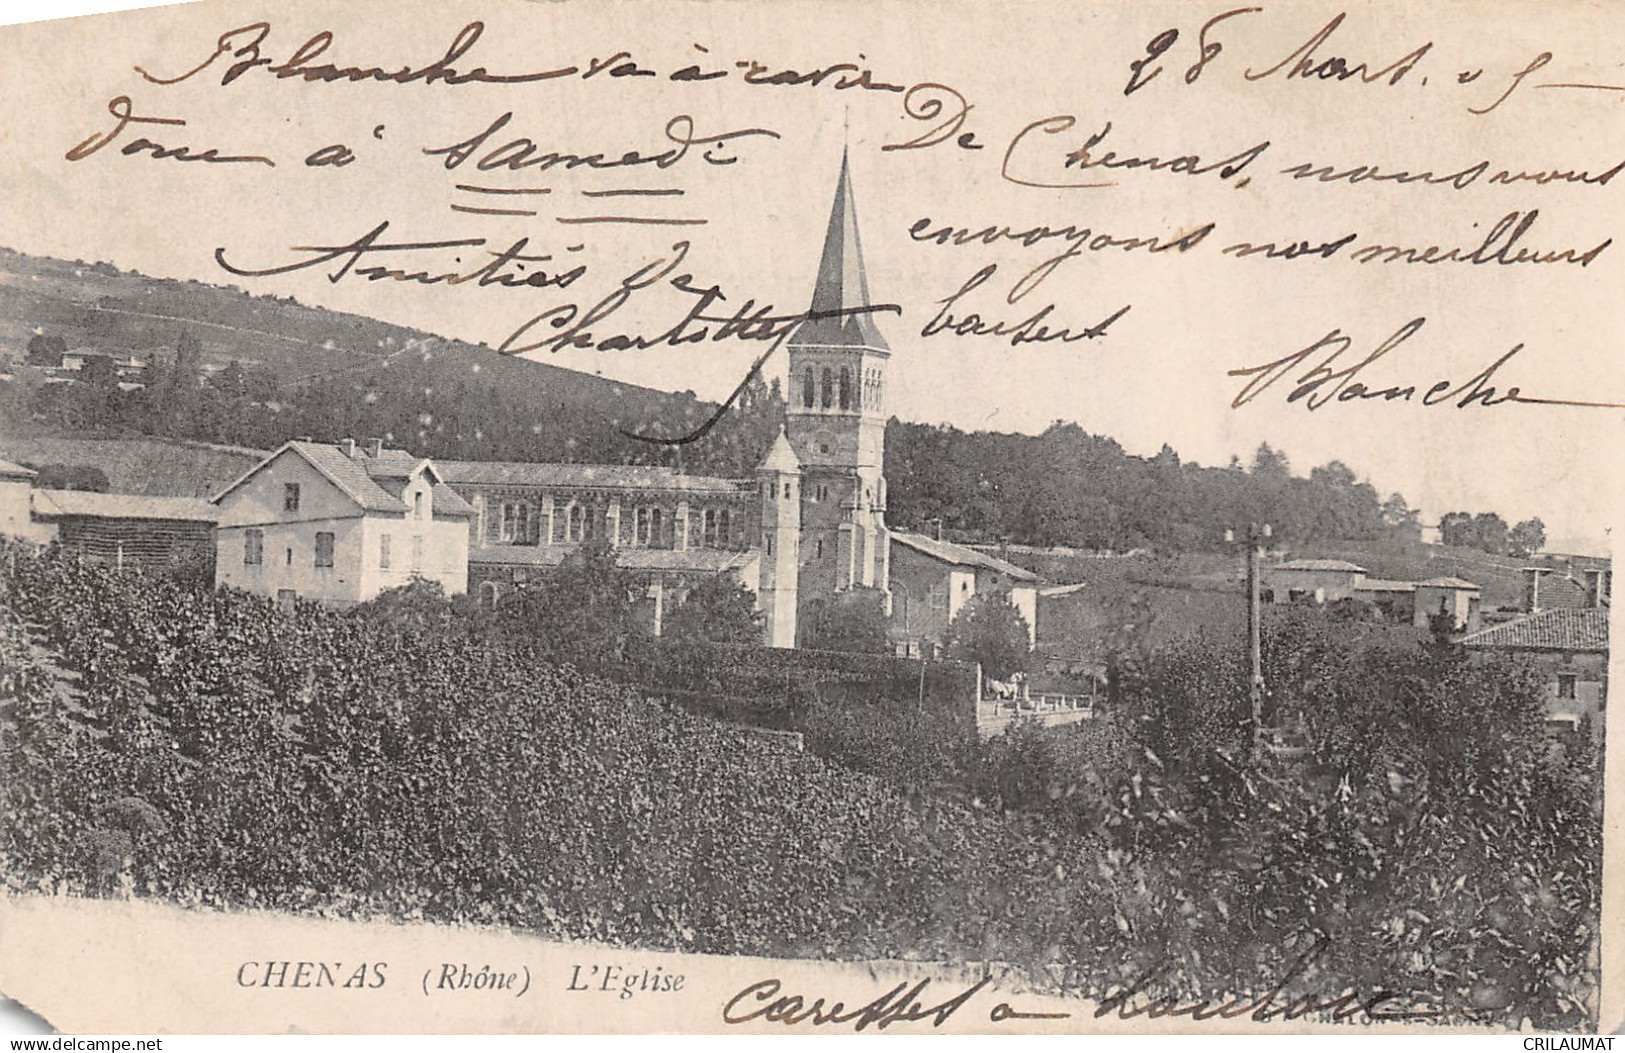 Blanche va à ravir
donc à Samedi
Amitiés de
Charlotte
28 Mars. 05
De Chenas, nous vous
envoyons nos meilleurs
baisers
Blanche
CHENAS (Rhône) L'Eglise
Caresses a Loulou
www.delcampe.net
CRILAUMAT